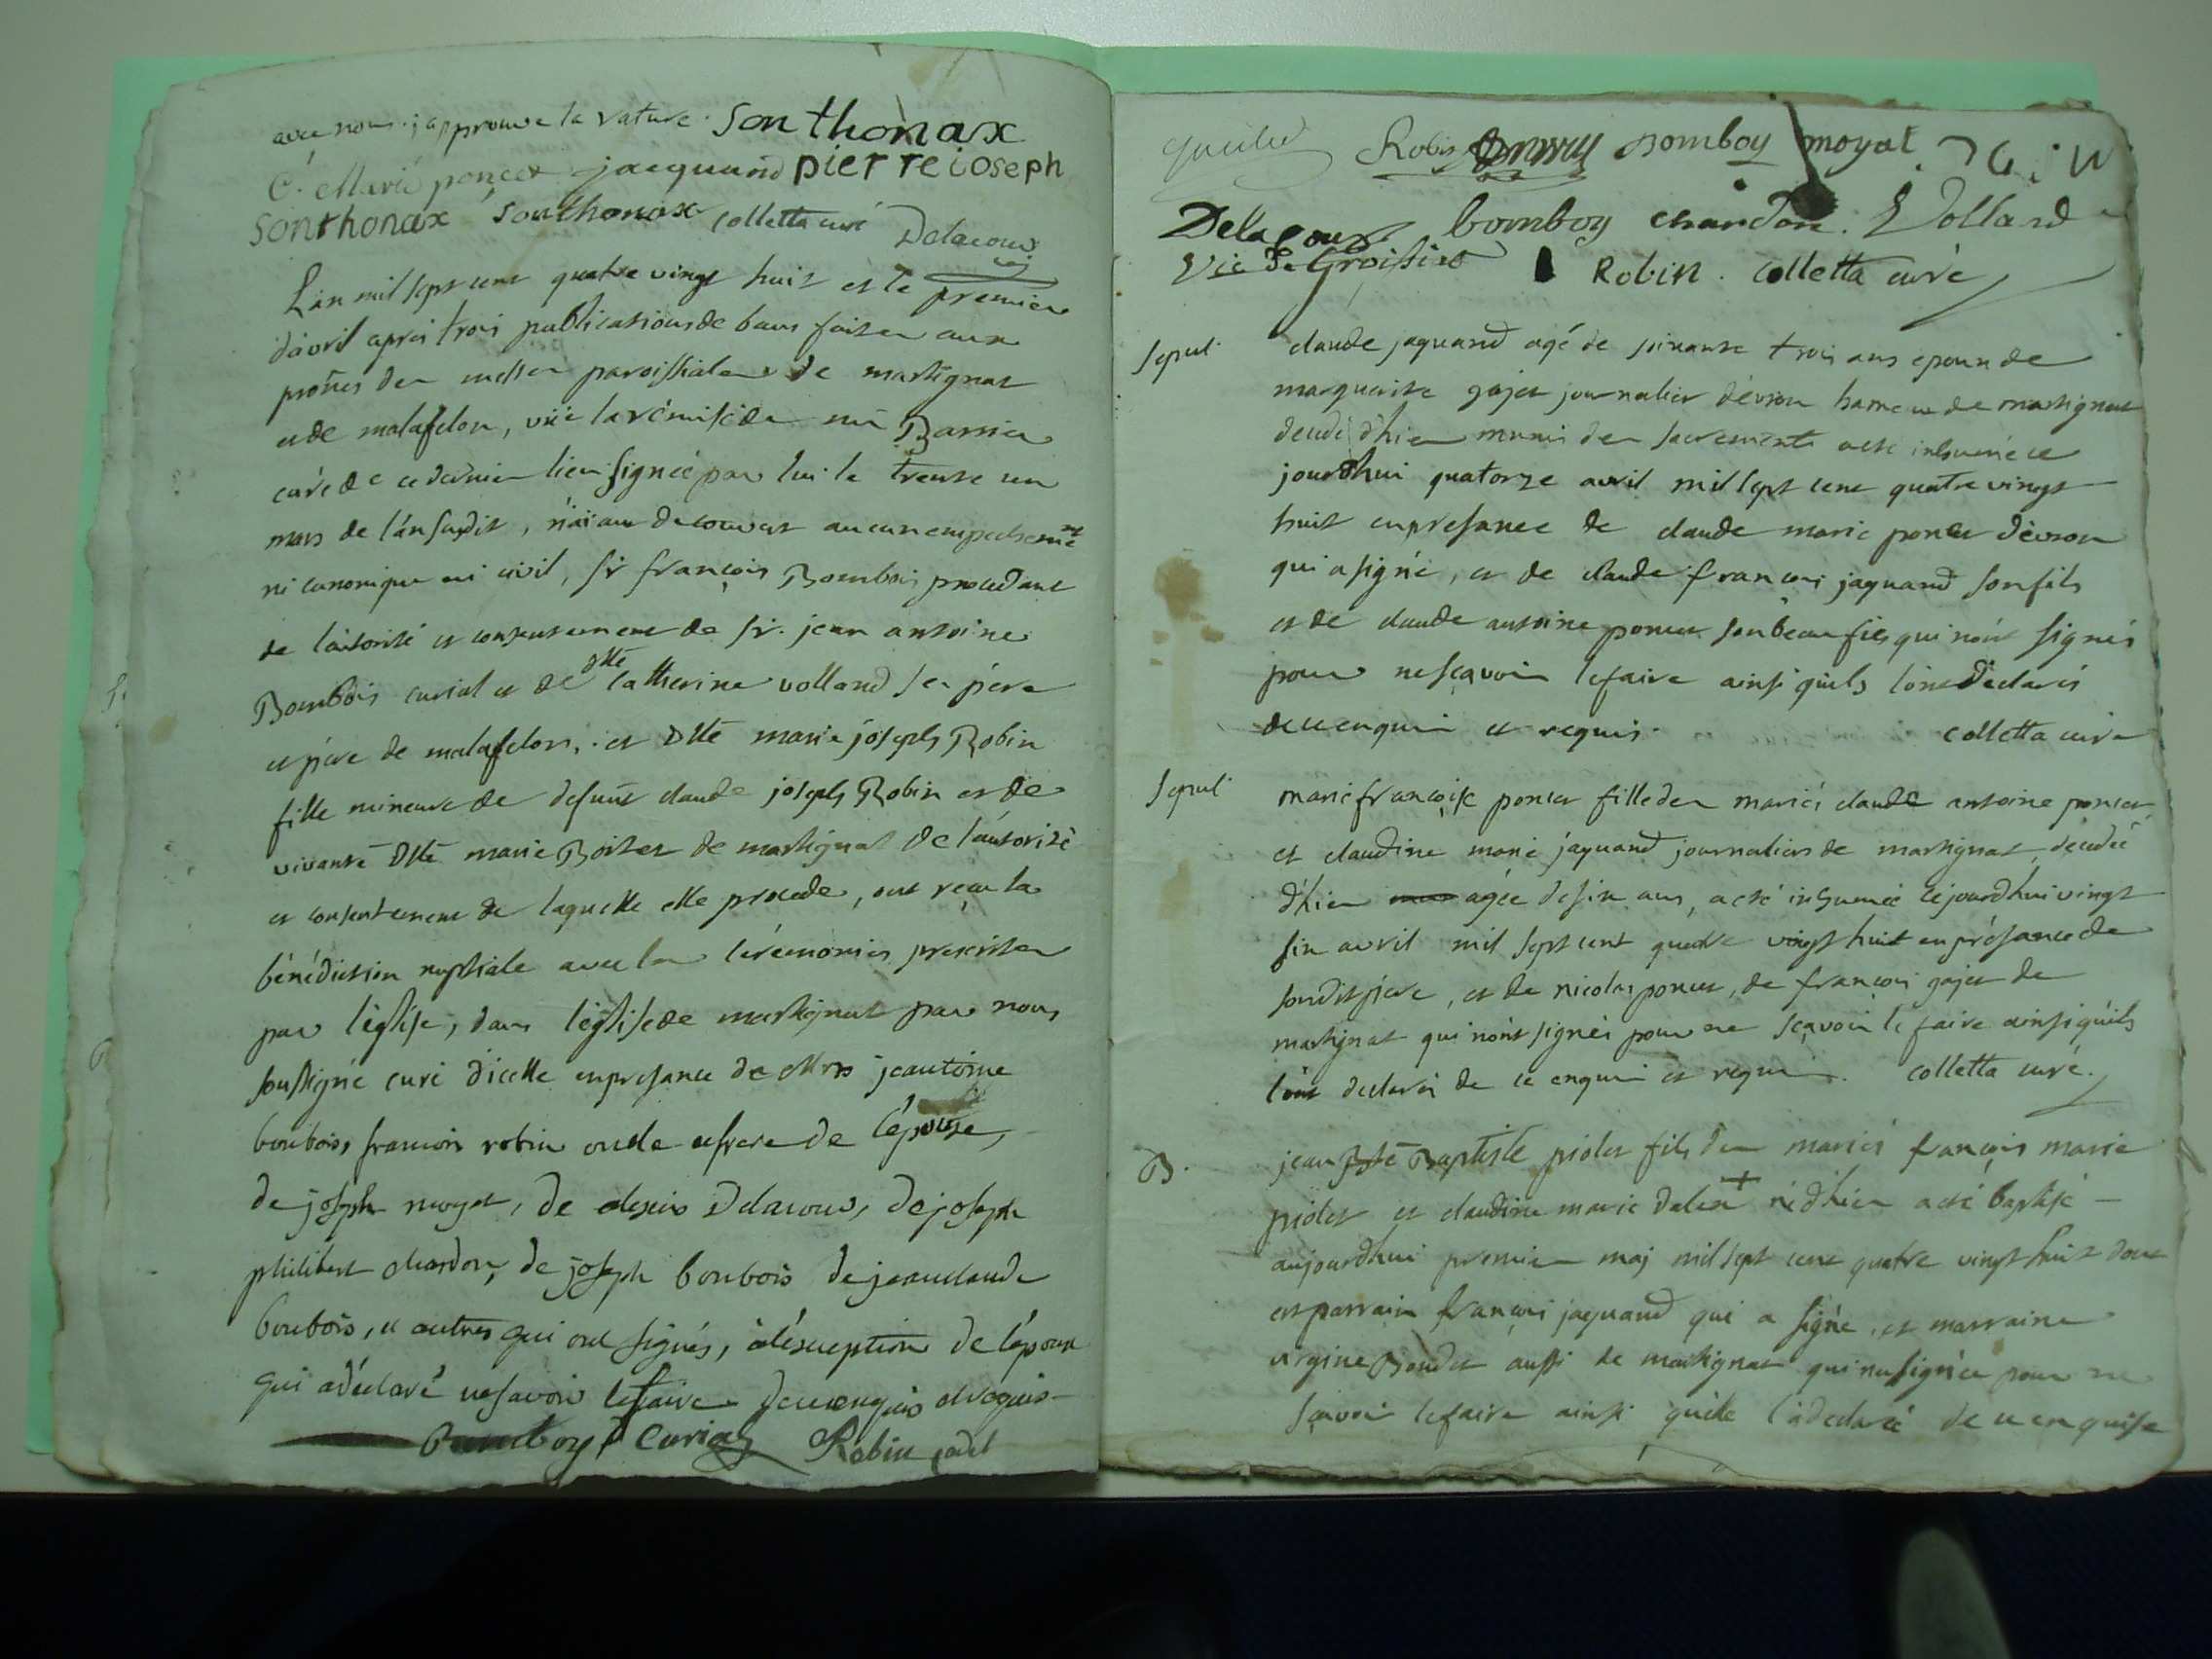 avec nous. japprouve la rature. Sonthonax
C. Marie poncet jacquand pierre ioseph
Sonthonax Sonthonax colletta curé Delacour
Lan mil sept cent quatre vingt huit et le premier
davril aprés trois publications de bans faites aux
prônes des messes paroissiales de martignat
et de matafelon, vüe la rémise de mr Barrier
curé de ce dernier lieu signée par lui le trente un
mars de lán susdit, n'aiant decouvert aucun empechemt
ni canonique ni civil, sr françois Bombois procedant
de lautorité et consentement de sr. jean antoine
Bombois curial et de dlle catherine volland ses père
et père de matafelon, et Dlle marie joseph Robin
fille mineure de defunt claude joseph Robin et de
vivante Dlle marie Boitet de martignat de lautorité
et consentement de laquelle elle procede, ont reçu la
bénédiction nuptiale avec les cérémonies prescrites
par léglise, dans léglise de martignat par nous
soussigné curé dicelle en presance de Mrs jeantoine
bonbois, francois robin oncle et frere de l'épouse,
de joseph moyat, de alexis Delacour, de joseph
philibert chardon, de joseph bonbois de jeanclaude
bonbois, et autres qui ont signés, à léxception de lépoux
qui a déclaré ne savoir le faire de ce enquis et requis
Bomboy Curial Robin
Robin Bomboy moyat
Delacour bomboy chardon. Volland
Vic de Groissiat Robin. colletta curé
sepul. claude jaquand agé de soixante trois ans epoux de
marguerite gojet journalier dévron hameau de martignat
decedé d'hier muni des sacrements a eté inhumé ce
jourdhui quatorze avril mil sept cent quatre vingt
huit en presance de claude marie poncet dévron
qui a signé, et de claude francois jaquand son fils
et de claude antoine poncet son beau fils qui n'ont signés
pour ne sçavoir le faire ainsi qu'ils lont déclarés
de ce enquis et requis. colletta curé
sepul. marie françoise poncet fille des mariés claude antoine poncet
et claudine marie jaquand journaliers de martignat, décedée
d'hier agée de six ans, a eté inhumée cejourdhui vingt
six avril mil sept cent quatre vingt huit en présance de
sondit père, et de nicolas poncet, de francois gojet de
martignat qui n'ont signés pour ne sçavoir le faire ainsi qu'ils
l'ont declarés de ce enquis et requis. colletta curé.
B. jean Bste Baptiste piolet fils des mariés françois marie
piolet et claudine marie né dhier a eté baptisé
aujourdhui premier maj mil sept cent quatre vingt huit dont
est parrain francois jaquand qui a signé, et marraine
aussi de martignat qui na signée pour ne
sçavoir le faire ainsi quelle l'a declaré de ce enquise